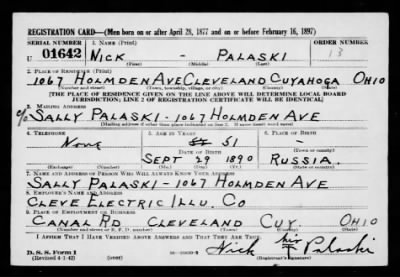 REGISTRATION CARD—(Men born on or after April 28, 1877 and on or before February 16, 1897)
SERIAL NUMBER 1. NAME (Print) ORDER NUMBER
U 01642 NICK - PALASKI 13
(First) (Middle) (Last)
2. PLACE OF RESIDENCE (Print)
1067 HOLMDEN AVE CLEVELAND CUYAHOGA OHIO
(Number and street) (Town, township, village, or city) (County) (State)
[THE PLACE OF RESIDENCE GIVEN ON THE LINE ABOVE WILL DETERMINE LOCAL BOARD
JURISDICTION; LINE 2 OF REGISTRATION CERTIFICATE WILL BE IDENTICAL]
3. MAILING ADDRESS
c/o SALLY PALASKI - 1067 HOLMDEN AVE
[Mailing address if other than place indicated on line 2. If same insert word same]
4. TELEPHONE 5. AGE IN YEARS 6. PLACE OF BIRTH
None 51 -
DATE OF BIRTH (Town or county)
SEPT 29 1890 RUSSIA.
(Exchange) (Number) (Mo.) (Day) (Yr.) (State or country)
7. NAME AND ADDRESS OF PERSON WHO WILL ALWAYS KNOW YOUR ADDRESS
SALLY PALASKI - 1067 HOLMDEN AVE
8. EMPLOYER'S NAME AND ADDRESS
CLEVE ELECTRIC ILLU. CO
9. PLACE OF EMPLOYMENT OR BUSINESS
CANAL RD CLEVELAND CUY. OHIO
(Number and street or R. F. D. number) (Town) (County) (State)
I AFFIRM THAT I HAVE VERIFIED ABOVE ANSWERS AND THAT THEY ARE TRUE.
D. S. S. Form 1
(Revised 4-1-42)
Nick his Palaski